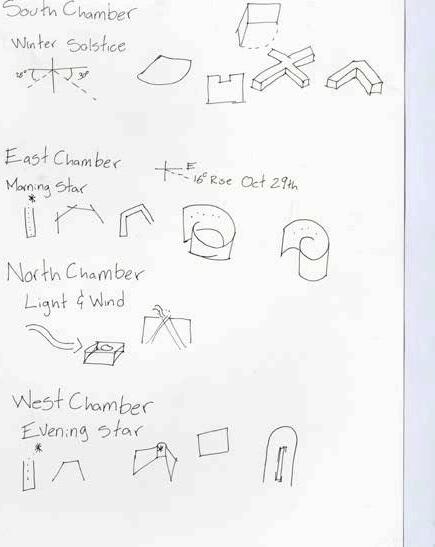 South Chamber
Winter Solstice
28° 30°
East Chamber
E
16° Rise Oct 29th
Morning Star
North Chamber
Light & Wind
West Chamber
Evening Star